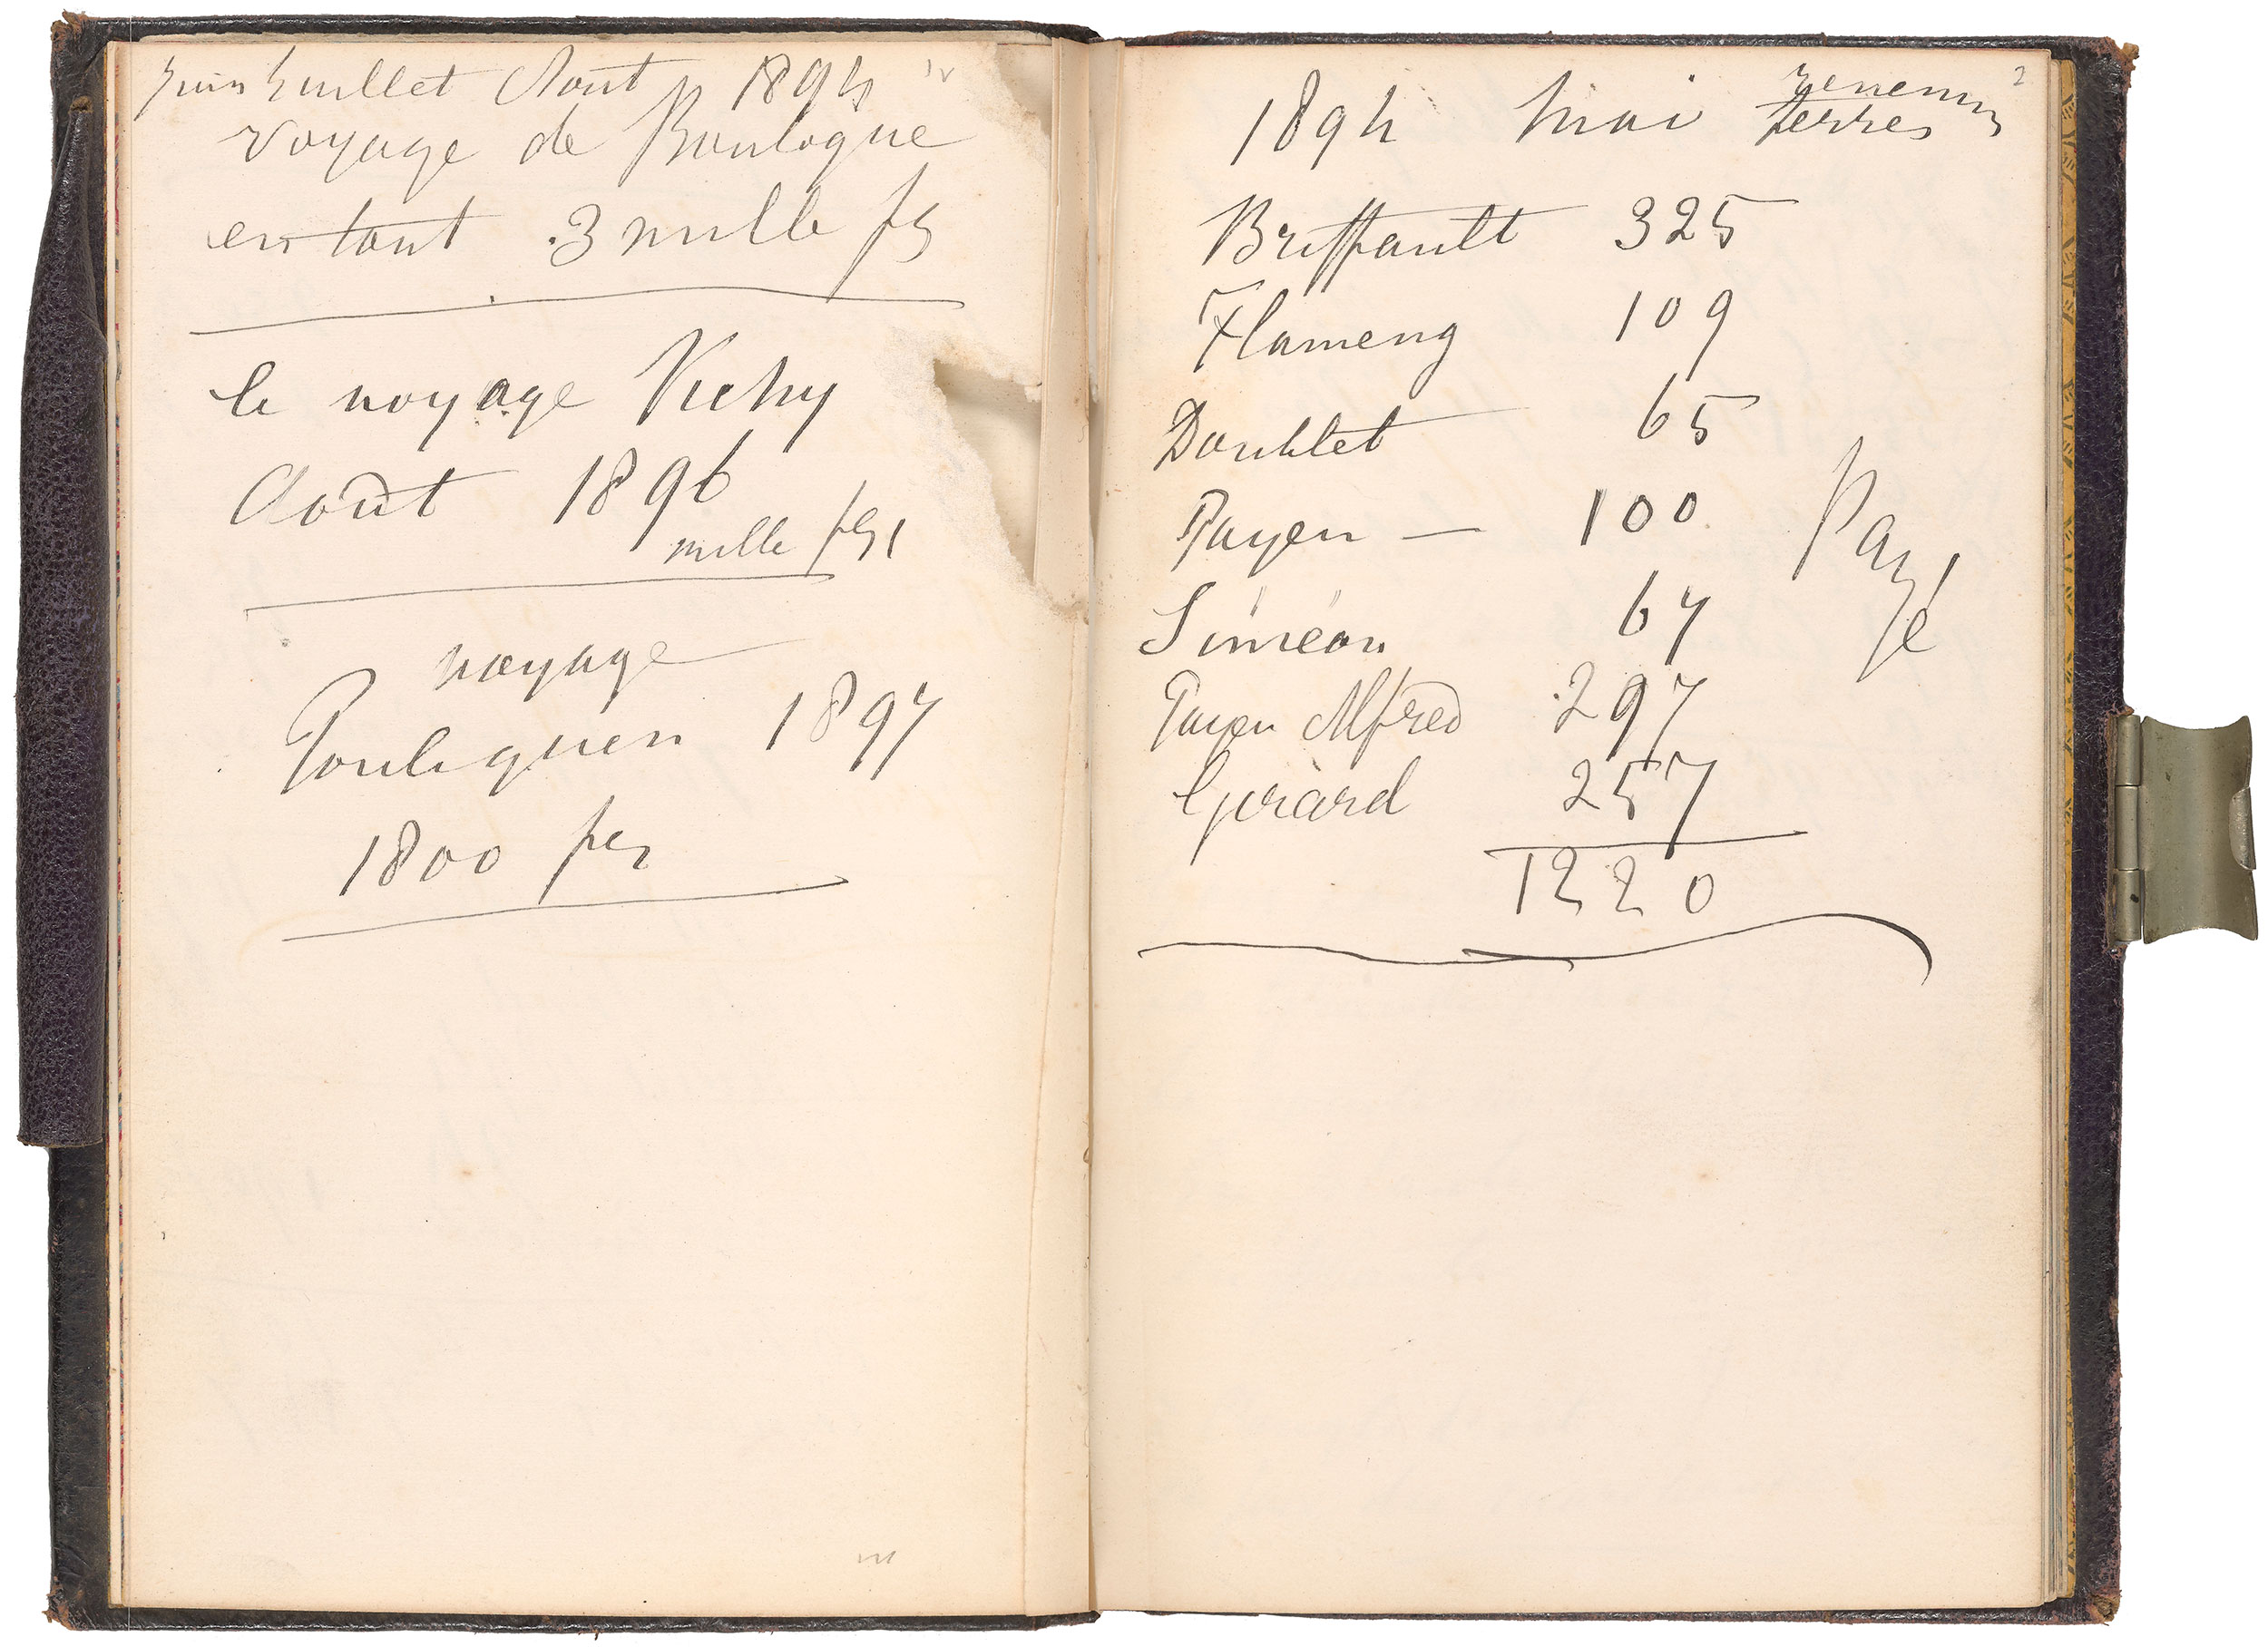 Juin Juillet Aout 1894
voyage de Boulogne
en tout 3 mille fs
le voyage Vichy
Août 1896
mille frs
voyage
Pouliguen 1897
1800 frs
2
1894 Mai revenus
terres
Briffault 325
Flameng 109
Doublet 65
Payen — 100
Siméon 67
Payen Alfred 297
Girard 257
Payé
1220